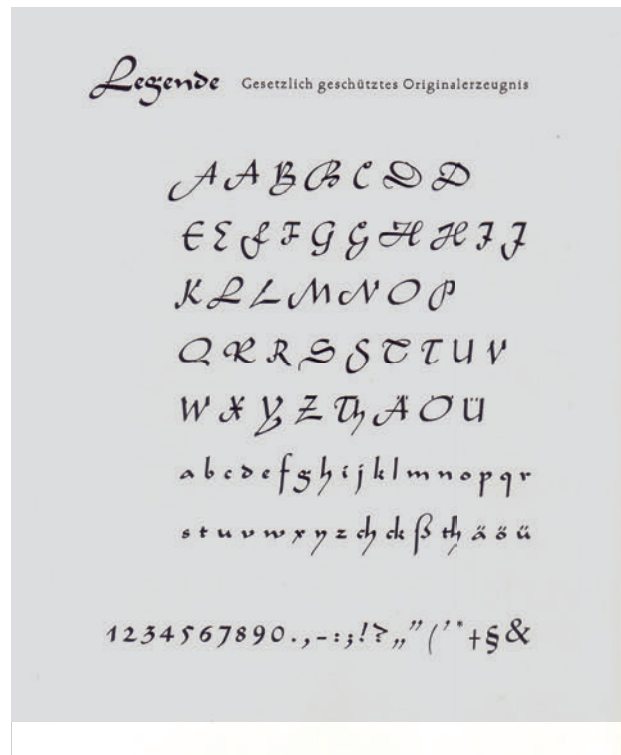 Legende Gesetzlich geschütztes Originalerzeugnis
A A B B C D D
E E F F G G H H I J
K L L M N O P
Q R R S S T T U V
W X Y Z Th Ä Ö Ü
a b c d e f g h i j k l m n o p q r
s t u v w x y z ch ck ß th ä ö ü
1 2 3 4 5 6 7 8 9 0 . , - : ; ! ? „ ” ( ’ * † § &